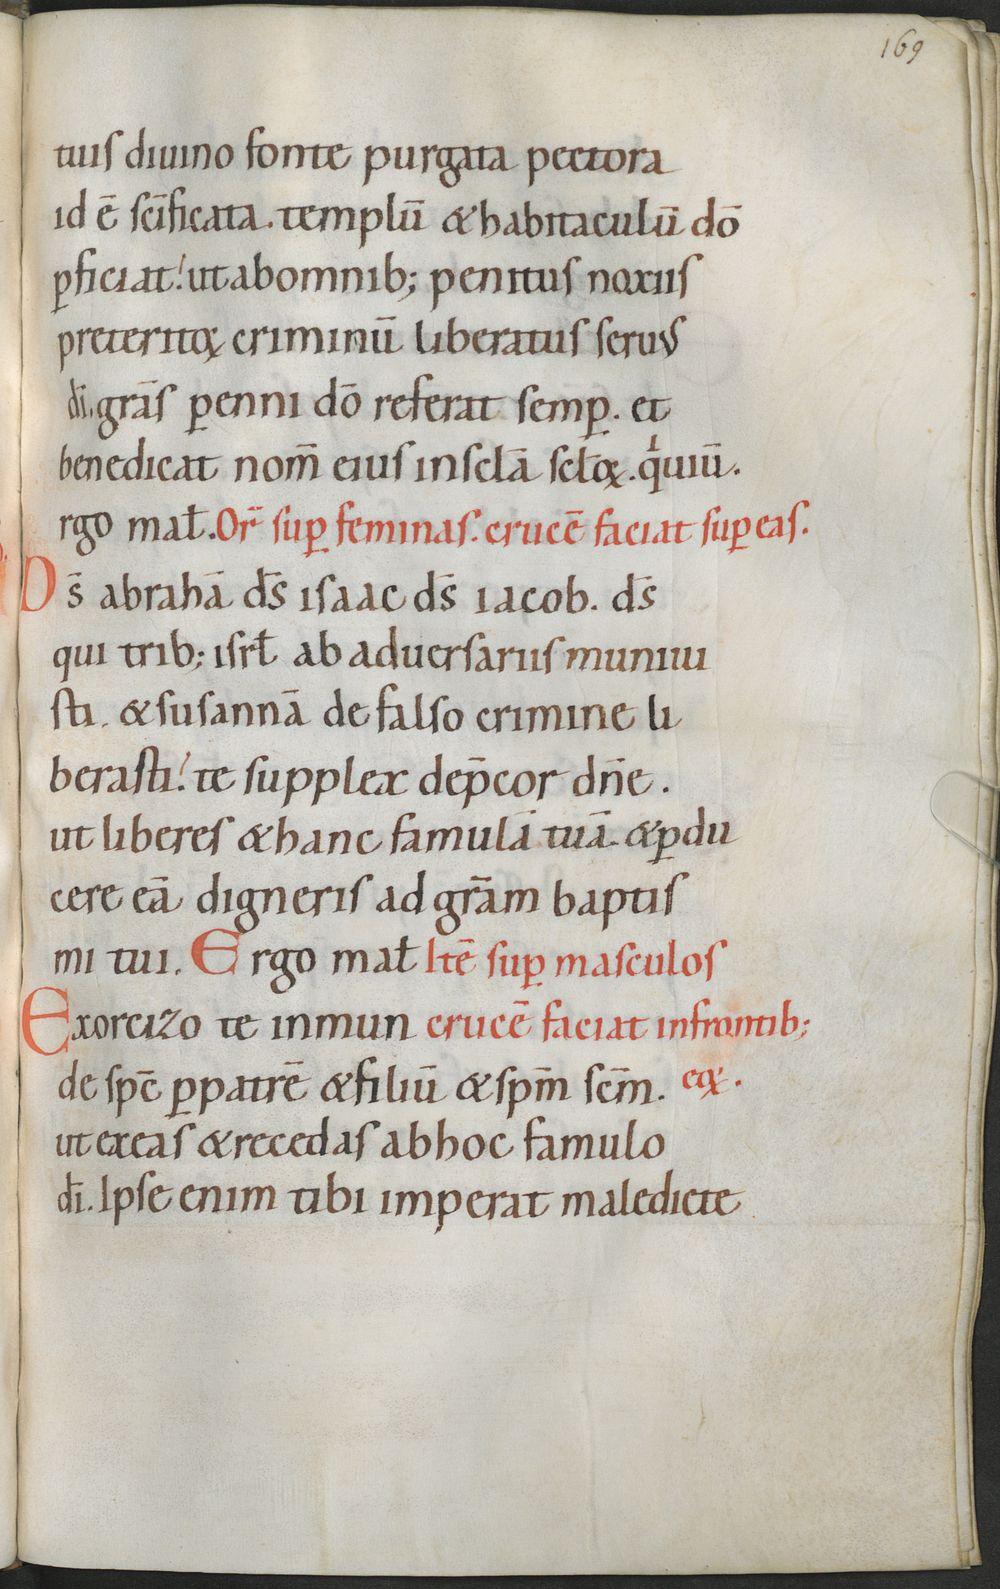 169
tuis diuino fonte purgata pectora
id ē scīficata. templū & habitaculū dō
ꝑficiat! ut ab omnib; penitus noxiis
preteritoꝝ criminū liberatus seruus
dī. grās ꝑenni dō referat semꝑ. et
benedicat nom̄ eius in sclā scłoꝝ. qͥ uiū.
rgo mał. Or̄ suꝑ feminas. crucē faciat suꝑ eas.
Ds̄ abrahā ds̄ isaac ds̄ iacob. ds̄
qui trib; isrł ab aduersariis muniui
sti. & susannā de falso crimine li
berasti! te supplex dep̄cor dn̄e.
ut liberes & hanc famulā tuā. & ꝑdu
cere eā digneris ad grām baptis
mi tui. Ergo mał Itē suꝑ masculos
Exorcizo te inmun crucē faciat in frontib;
de spē ꝑ patrē & filiū & spm̄ scm̄. eoꝝ.
ut exeas & recedas ab hoc famulo
dī. Ipse enim tibi imperat maledicte